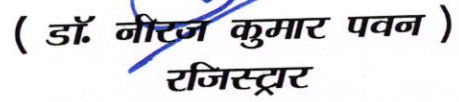 ( डॉ. नीरज कुमार पवन )
रजिस्ट्रार